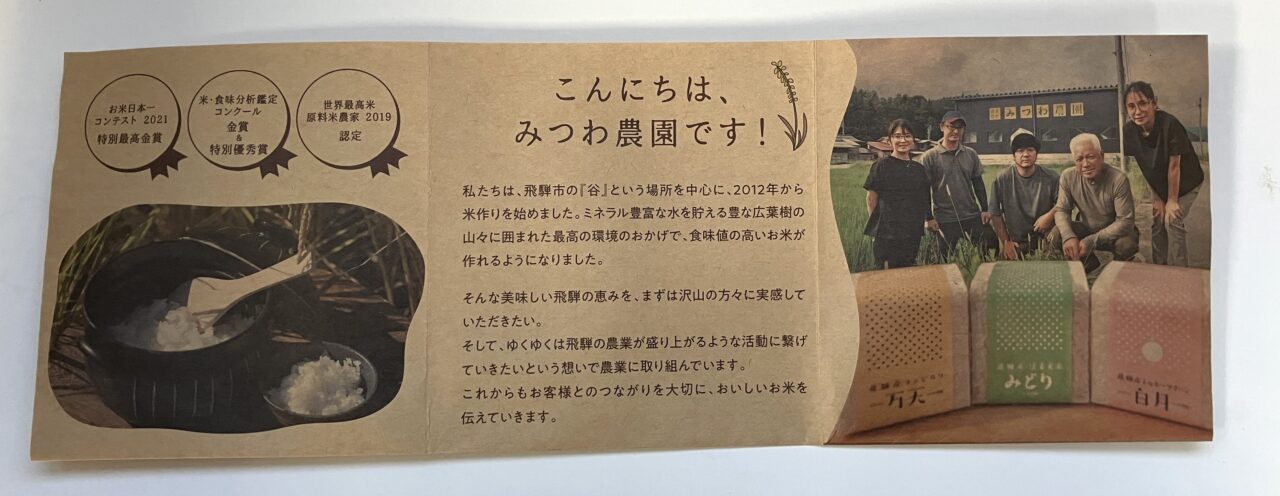 お米日本一
コンテスト 2021
特別最高金賞
米・食味分析鑑定
コンクール
金賞
&
特別優秀賞
世界最高米
原料米農家 2019
認定
こんにちは、
みつわ農園です！
私たちは、飛騨市の『谷』という場所を中心に、2012年から
米作りを始めました。ミネラル豊富な水を貯える豊な広葉樹の
山々に囲まれた最高の環境のおかげで、食味値の高いお米が
作れるようになりました。
そんな美味しい飛騨の恵みを、まずは沢山の方々に実感して
いただきたい。
そして、ゆくゆくは飛騨の農業が盛り上がるような活動に繋げ
ていきたいという想いで農業に取り組んでいます。
これからもお客様とのつながりを大切に、おいしいお米を
伝えていきます。
みつわ農園
飛騨産コシヒカリ
万天
みどり
飛騨産ミルキークイーン
白月